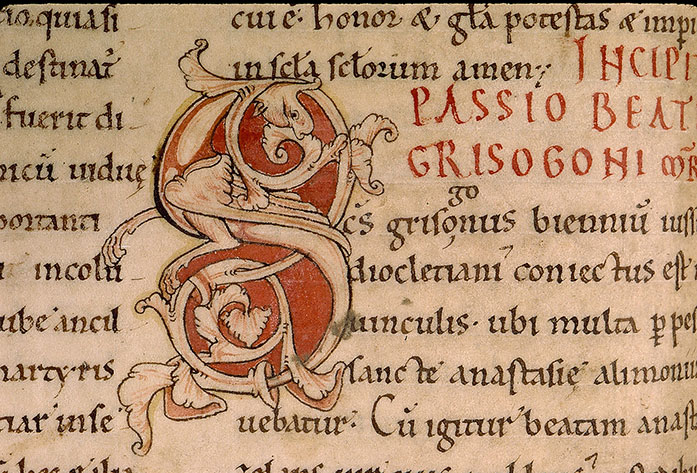 quiasi
destinat̄
fuerit di
uiduę
portanti
incolu
ube ancil
martyris
tiar inse
cui ē honor & gl̄a potestas & imp
in scl̄a scl̄orum amen; INCIPI
PASSIO BEAT
GRISOGONI
go
Scs̄ grisonus bienniū iuss
diocletiani coniectus est
uinculis. ubi multa p pes
sancte anastasie alimoniu
uebatur. Cū igitur beatam anast